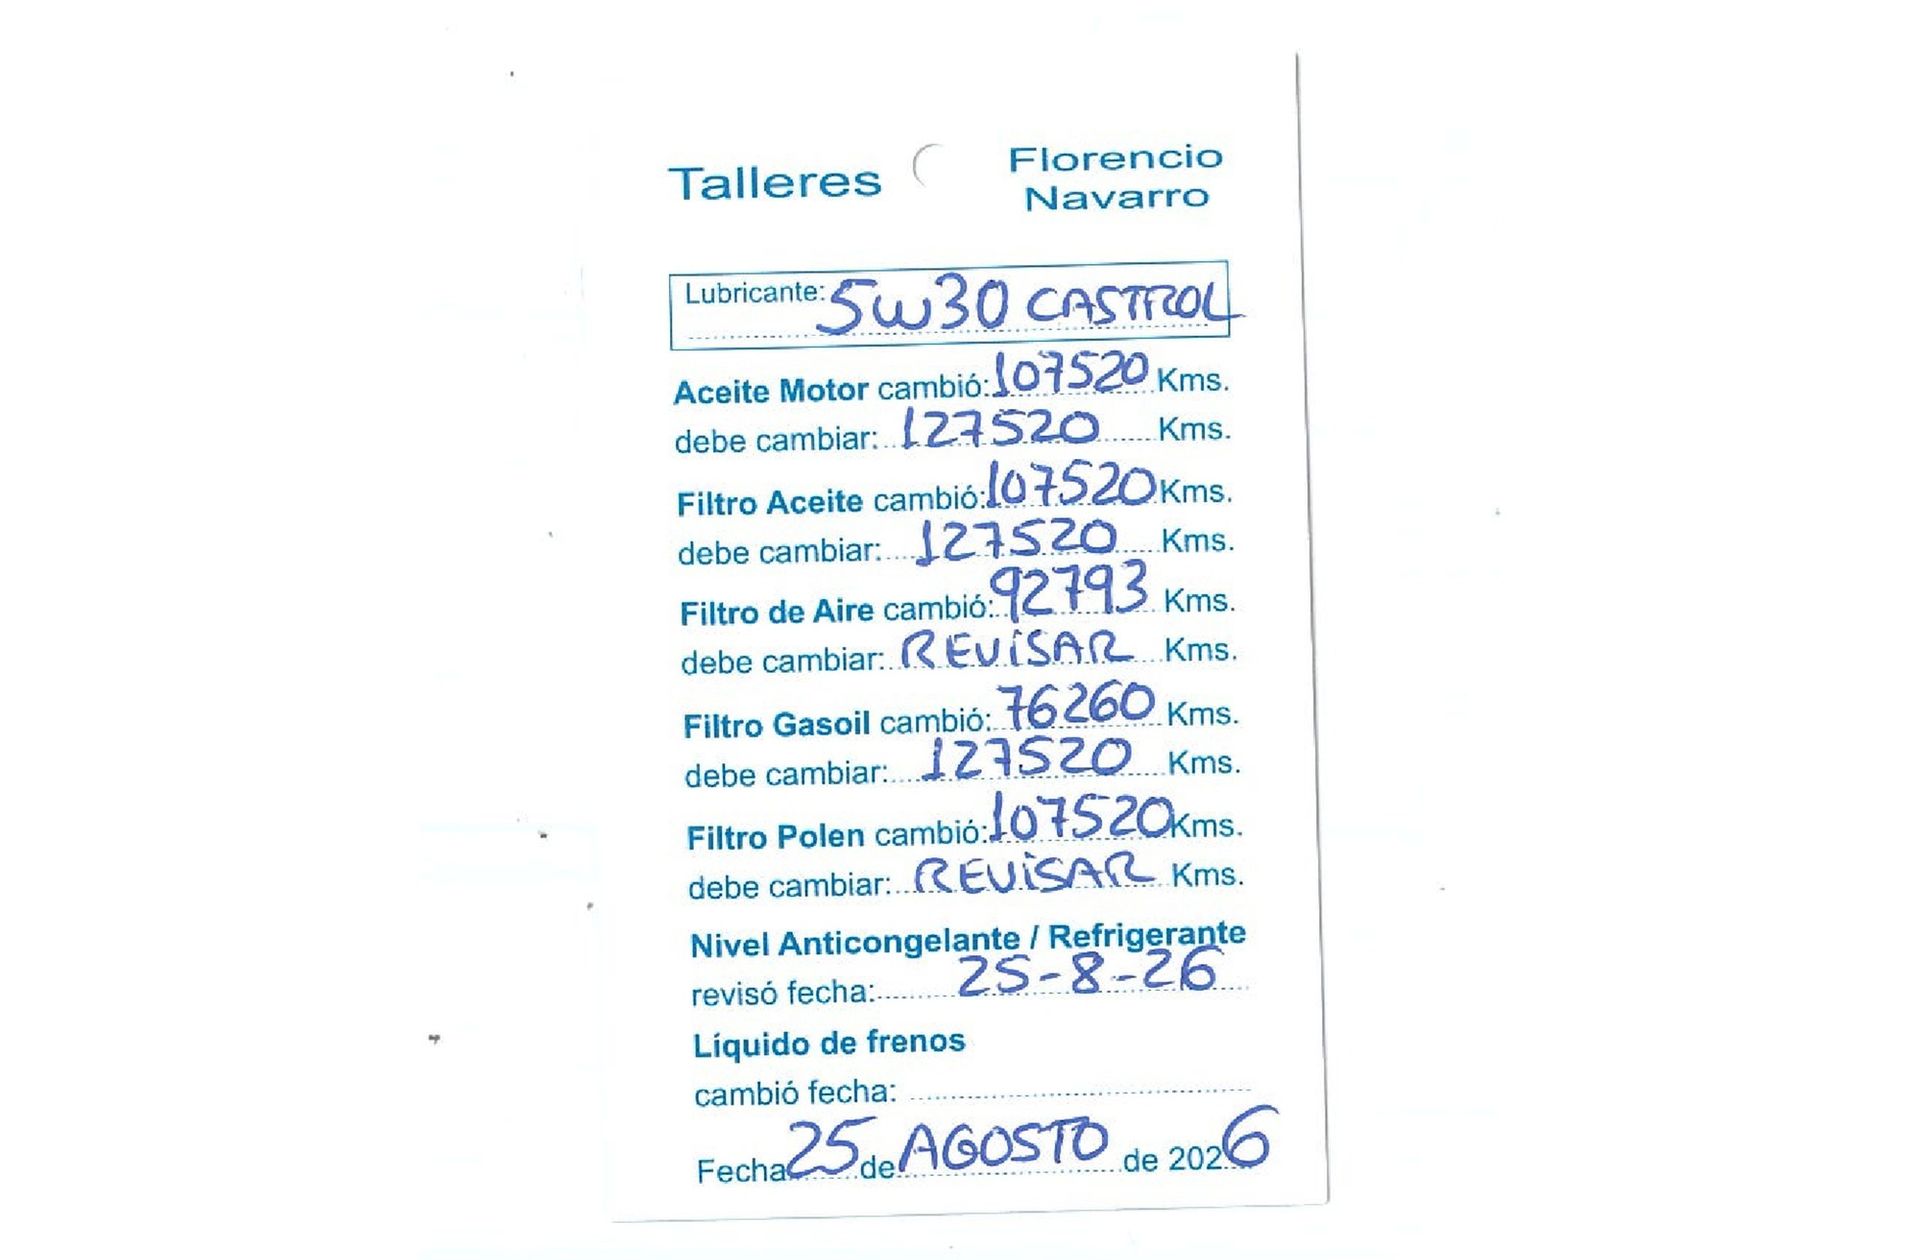 Talleres Florencio Navarro
Lubricante: 5W30 CASTROL
Aceite Motor cambió: 107520 Kms.
debe cambiar: 127520 Kms.
Filtro Aceite cambió: 107520 Kms.
debe cambiar: 127520 Kms.
Filtro de Aire cambió: 92793 Kms.
debe cambiar: REVISAR Kms.
Filtro Gasoil cambió: 76260 Kms.
debe cambiar: 127520 Kms.
Filtro Polen cambió: 107520 Kms.
debe cambiar: REVISAR Kms.
Nivel Anticongelante / Refrigerante
revisó fecha: 25-8-26
Líquido de frenos
cambió fecha:
Fecha 25 de AGOSTO de 2026